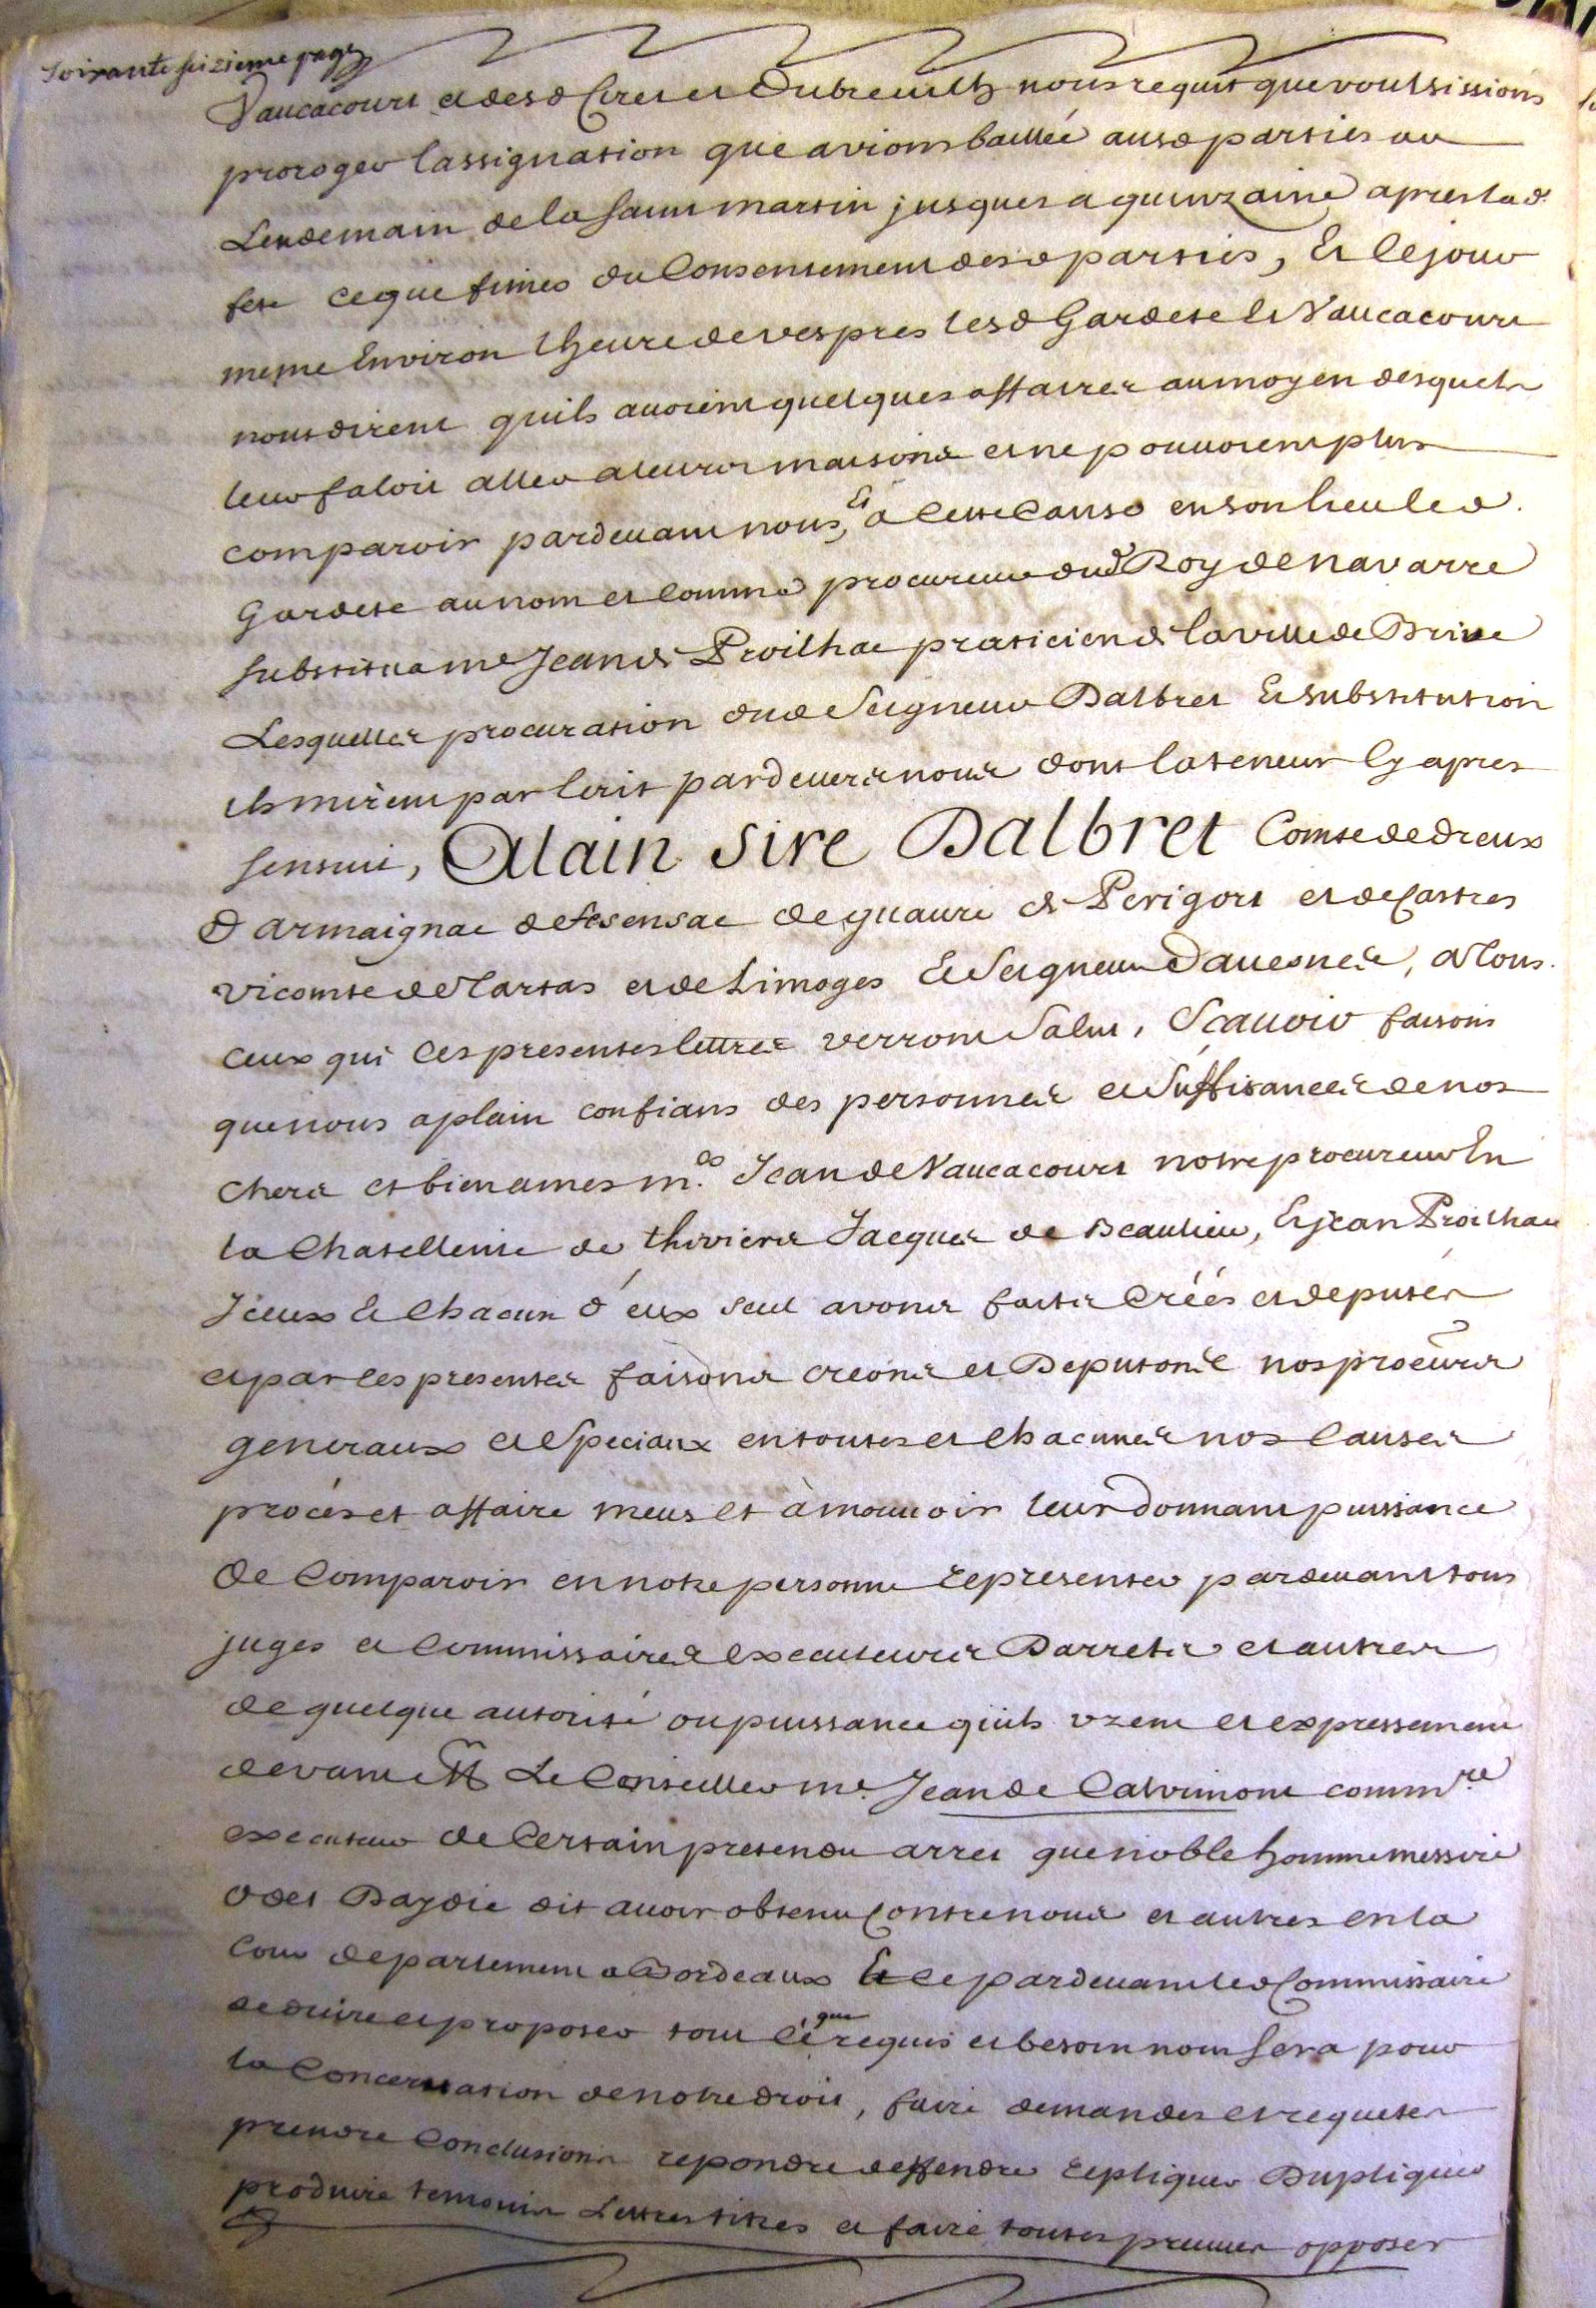 Soixante seizieme page
Vaucacourt et desd Cires et Dubreuilh nous requit que voulsissions
proroger lassignation que avions baillée ausd parties au
Lendemain de la saint martin jusques a quinzaine apres lad.
fete ce que fimes du Consentement desd parties, Et le jour
meme Environ lheure de vespres lesd Gardese et Vaucacourt
nous dirent quils avoient quelques affaires au moyen desquels
leur faloit aller a leurs maisons et ne pouvoient plus
comparoir pardevant nous, Et a cette cause en son lieu led.
Gardese au nom et comme procureur dud Roy de navarre
substitua me Jean de Proilhac praticien de la ville de Brive
Lesquelles procuration dud Seigneur Dalbret Et substitution
ils mirent par Ecrit pardevers nous dont la teneur Cy apres
sensuit, Alain Sire Dalbret Comte de dreux
D armaignac de fesensac de guaure de Perigort et de Castres
vicomte de Tartas et de Limoges Et Seigneur Davesnes, A Tous
ceux qui ces presentes lettres verront Salut, Scauoir faisons
que nous a plain confians des personnes et suffisances de nos
chers et bien ames m.es Jean de Vaucacourt notre procureur En
la Chatellenie de thiviers Jacques de Beaulieu, Et jean Proilhac
Jceux Et Chacun d'eux seul avons faits Créés et deputés
et par ces presentes faisons creons et Deputons nos procurs
generaux et Speciaux en toutes et chacunes nos causes
procès et affaire meus et à mouvoir leur donnant puissance
de Comparoir en notre personne representer pardevant tous
juges et Commissaires executeurs Darrets et autres
de quelque autorité ou puissance quils uzent et expressement
devant M Le Conseiller me. Jean de Calvimont comm.re
executeur de Certain pretendu arret que noble homme messire
Odet Daydie dit avoir obtenu Contre nous et autres en la
Cour de parlement a Bordeaux Et ce pardevant led Commissaire
deduire et proposer tout ce que requis et besoin nous sera pour
la Concervation de notre droit, faire demandes et requetes
prendre Conclusions repondre deffendre repliquer Dupliquer
produire temoins Lettres titres et faire toutes preuves opposer